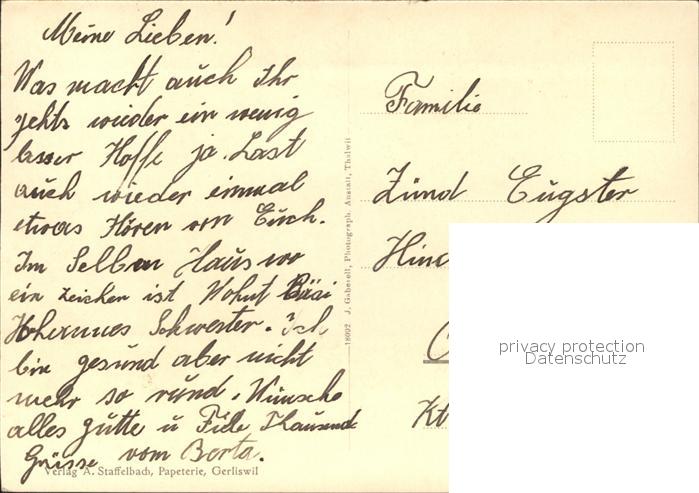 Meine Lieben!
Was macht auch Ihr
gehts wieder ein wenig
besser Hoffe ja. Last
auch wieder einmal
etwas Hören von Euch.
Im Selben Haus wo
ein zeichen ist Wohnt Bäsi
Johannes Schwester. Ich
bin gesund aber nicht
mehr so rund. Wünsche
alles gutte u Fiele Thausend
Grüsse vom Berta.
Verlag A. Staffelbach, Papeterie, Gerliswil
18092 J. Gaberell, Photograph. Anstalt, Thalwil
Familie
Zünd Eugster
Kt
privacy protection
Datenschutz